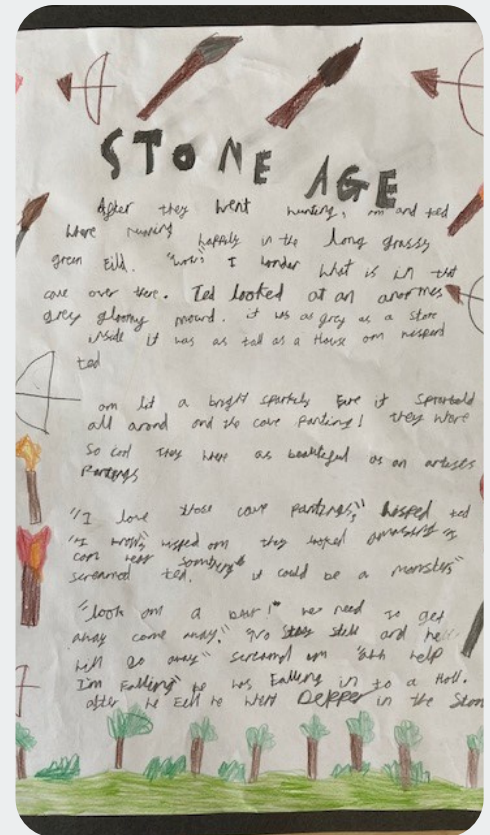 STONE AGE
After they went hunting, om and ted
where running happily in the long grassy
green Eild. "wow" I wonder what is in that
cave over there. Ted looked at an anormes
grey gloomy mound. it was as grey as a stone
inside it was as tall as a House om
ted
om lit a bright sparkely Eire it
all arond and the cave Panting! they were
So cool they where as as an
Pantings
"I love those cave pantings," wisped ted
wisped om they looked "I
can hear
screamed ted. it could be a monster"
"look om a bear!" we need to get
away come away." "No stay still and
will Go away" screamd om "ahh help
I'm Ealling" he was Ealling in to a Holl.
after he Eell he went Depper in the Ston